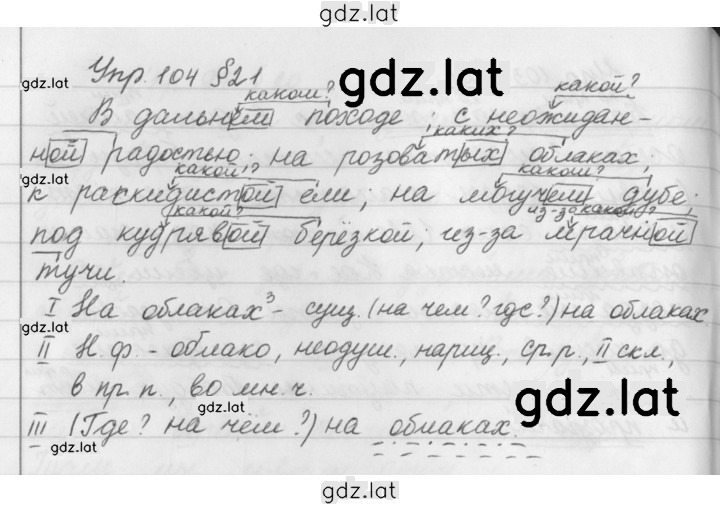 gdz.lat
Упр. 104 §21
gdz.lat
gdz.lat
каком? какой?
В дальнем походе; с неожидан-
каких?
ной радостью; на розоватых облаках;
gdz.lat
какой? каком?
к раскидистой ели; на могучем дубе;
какой? из-за какой?
под кудрявой берёзкой; из-за мрачной
gdz.lat
тучи.
I На облаках³ - сущ. (на чем? где?) на облаках.
gdz.lat
II Н.ф. - облако, неодуш., нариц., ср.р., II скл.,
в пр.п., во мн.ч.
gdz.lat
gdz.lat
III (Где? на чем?) на облаках.
gdz.lat
gdz.lat
gdz.lat